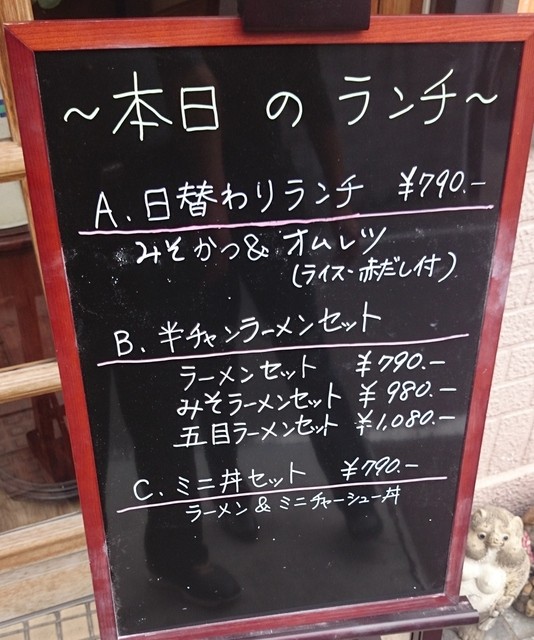 ～本日 の ランチ～
A. 日替わりランチ ¥790.-
みそかつ& オムレツ
(ライス・赤だし付)
B. 半チャンラーメンセット
ラーメンセット ¥790.-
みそラーメンセット ¥980.-
五目ラーメンセット ¥1,080.-
C. ミニ丼セット ¥790.-
ラーメン & ミニチャーシュー丼